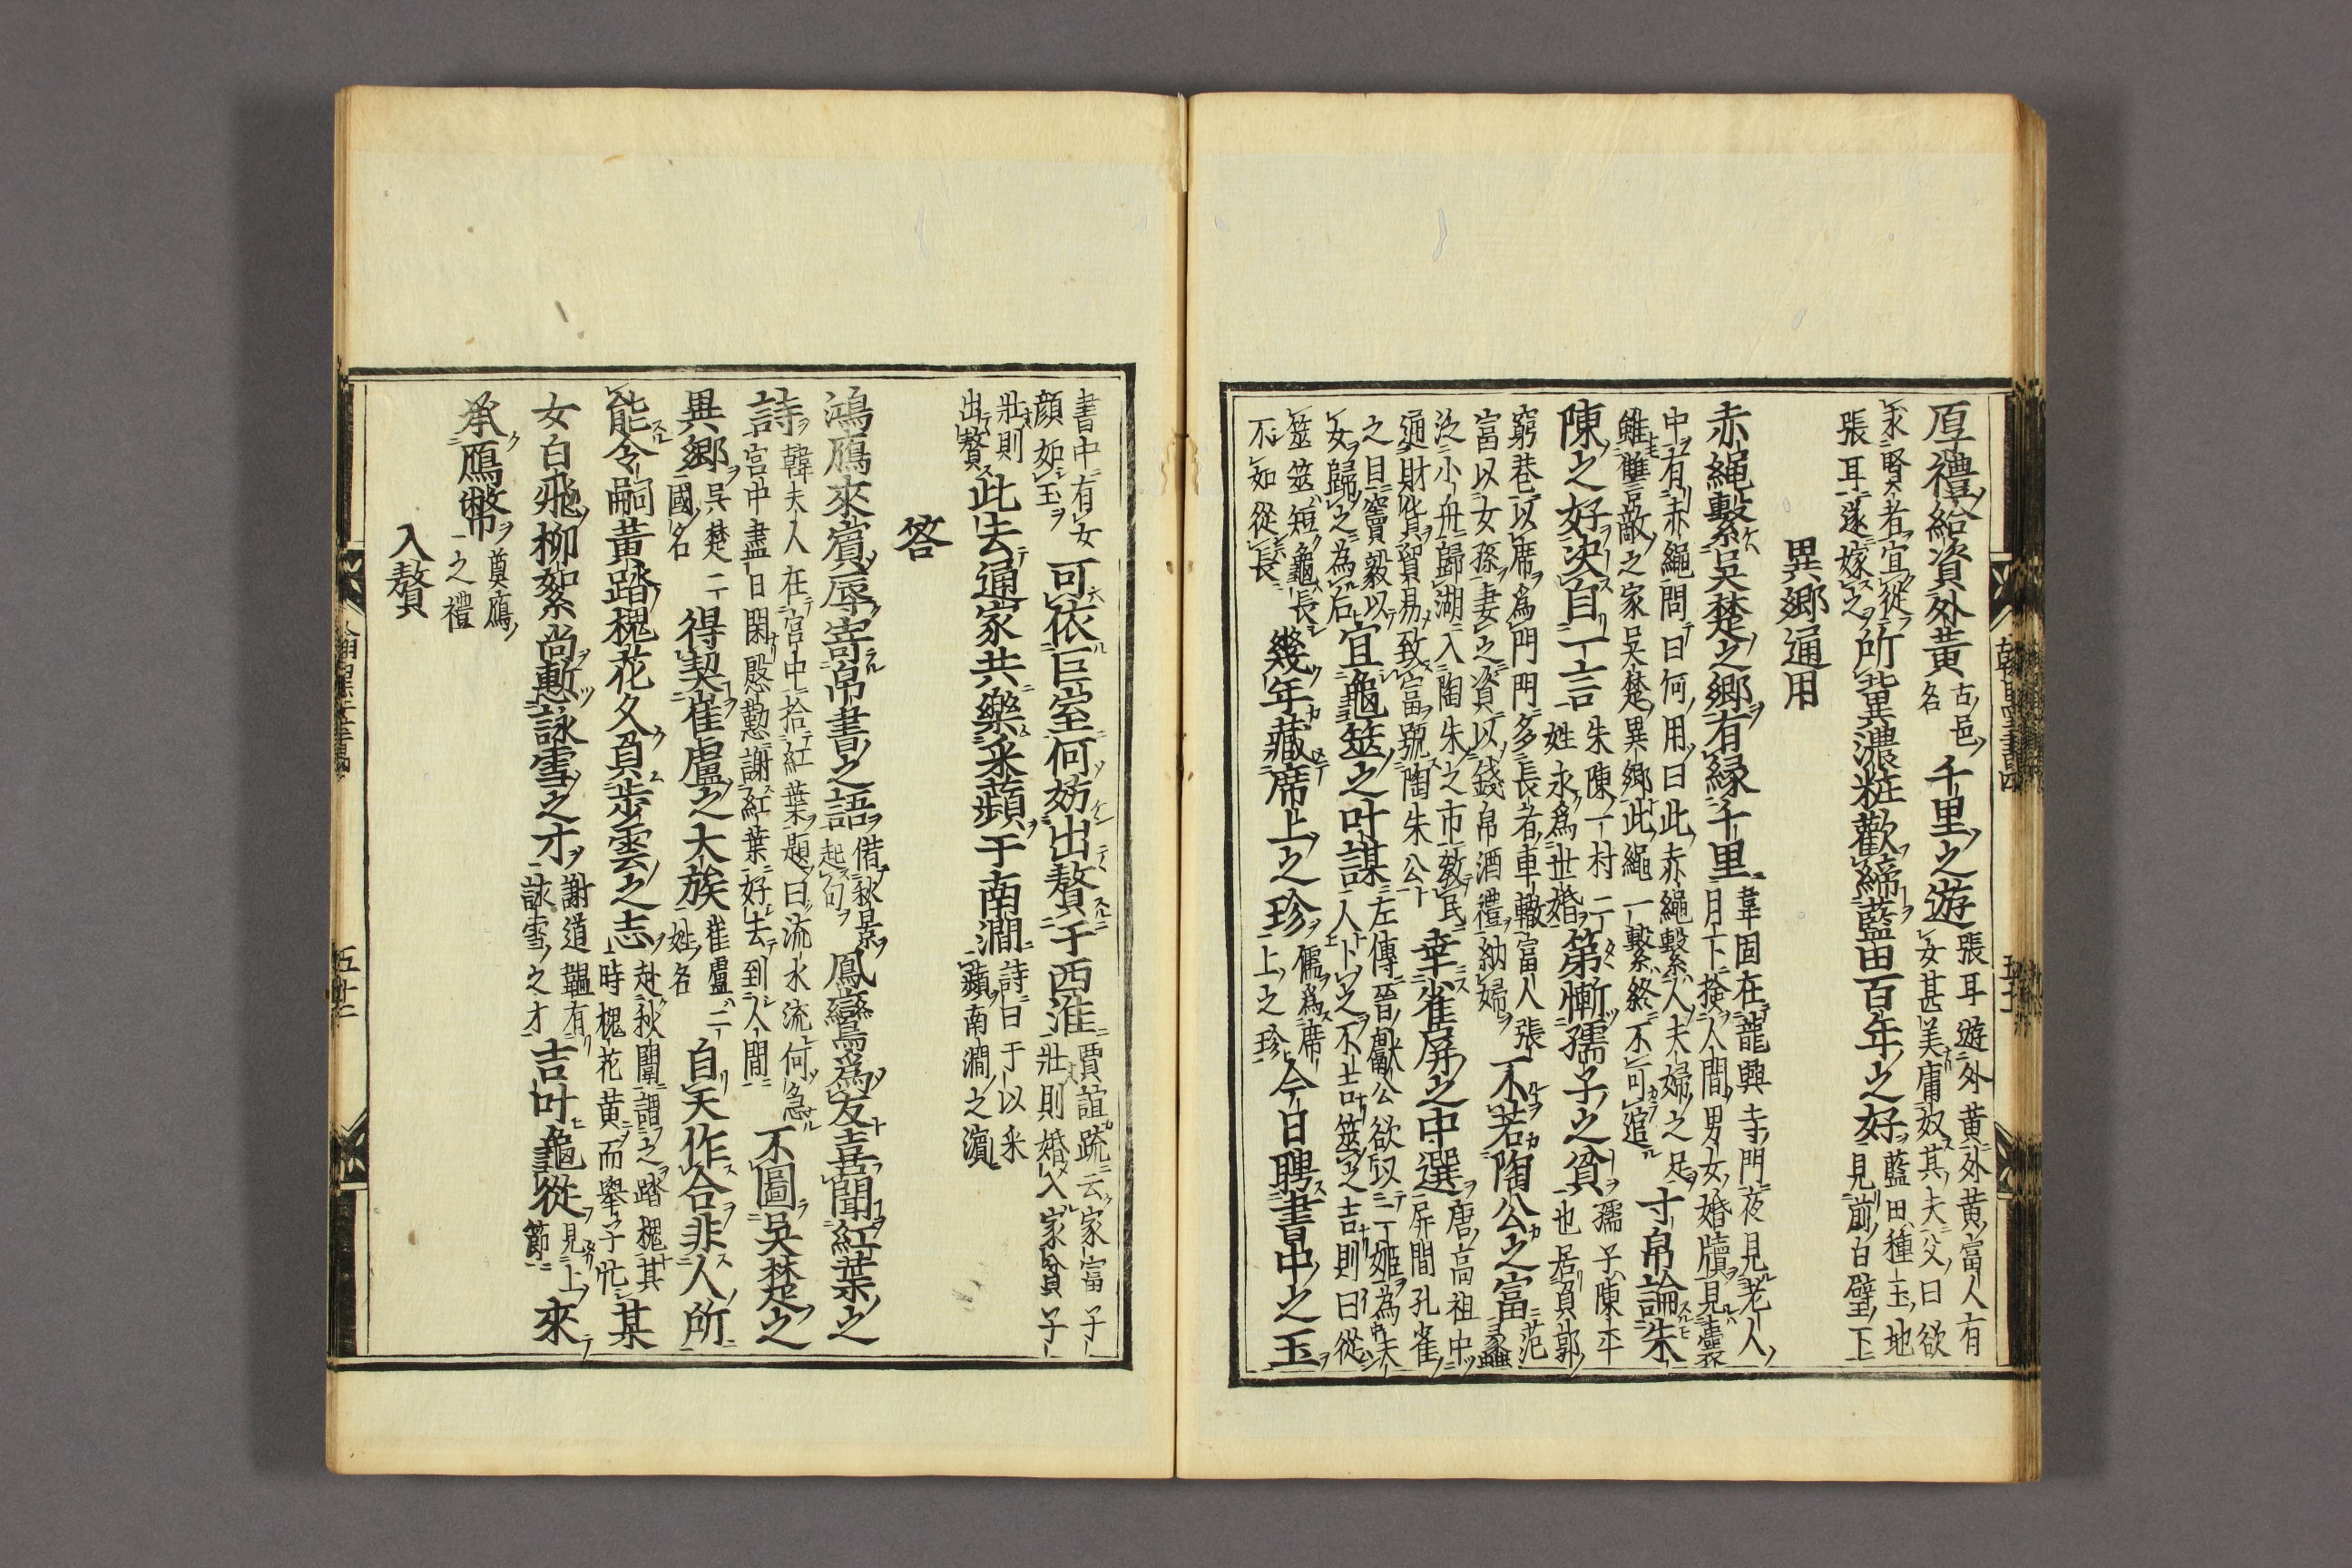 厚禮給資外黃古邑名千里之遊張耳遊外黃外黃富人有女甚美庸奴其夫父曰欲
求賢者宜從張耳遂嫁之所冀濃粧歡締藍田百年之好藍田種玉地見前白璧下
異鄉通用
赤繩繫吳楚之鄉有縁千里韋固在龍興寺門夜見老人月下撿人間男女婚牘見囊
中有赤繩問曰何用曰此赤繩繫人夫婦之足雖讎敵之家吳楚異鄉此繩一繫終不可逭寸帛論朱
陳之好決自一言朱陳一村二姓永爲世婚第慚孺子之貧孺子陳平也居負郭
窮巷以席爲門門多長者車轍富人張富以女孫妻之資以錢帛酒禮納婦不若陶公之富范蠡
泛小舟歸湖入陶朱之市教民通財貨貿易致富號陶朱公幸雀屏之中選唐高祖中屏間孔雀
之目竇毅以女歸之為后宜龜筮之叶謀左傳晉獻公欲以丁姬為夫人卜之不吉筮之吉則曰從
筮筮短龜長不如從長幾年藏席上之珍儒爲席上之珍今日聘書中之玉
書中有女顔如玉可依巨室何妨出贅于西淮賈誼疏云家富子壯則婚入家貧子
壯則出贅此去通家共樂采蘋于南澗詩曰于以采蘋南澗之濵
答
鴻鴈來賔辱寄帛書之語借秋景起句鳳鸞為友喜聞紅葉之
詩韓夫人在宮中拾紅葉題曰流水流何急宮中盡日閑慇懃謝紅葉好去到人間不圖吳楚之
異鄉吳楚二國名得契崔盧之大族崔盧二姓名自天作合非人所
能令嗣黃踏槐花久負步雲之志赴秋闈謂之踏槐其時槐花黃而舉子忙某
女白飛柳絮尚慙詠雪之才謝道韞有詠雪之才吉叶龜從見上節來
承鴈幣奠鴈之禮
入贅